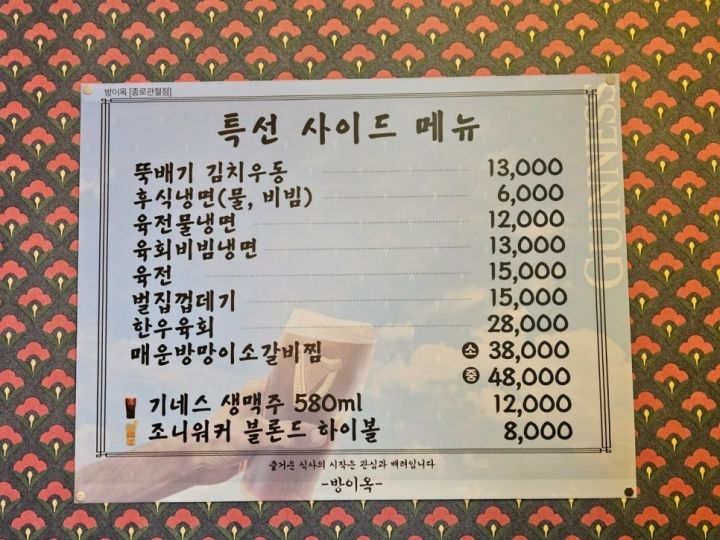 방이옥 [종로관철점]
특선 사이드 메뉴
뚝배기 김치우동 13,000
후식냉면(물, 비빔) 6,000
육전물냉면 12,000
육회비빔냉면 13,000
육전 15,000
벌집껍데기 15,000
한우육회 28,000
매운방망이소갈비찜 소 38,000
중 48,000
기네스 생맥주 580ml 12,000
조니워커 블론드 하이볼 8,000
즐거운 식사의 시작은 관심과 배려입니다
-방이옥-
GUINNESS